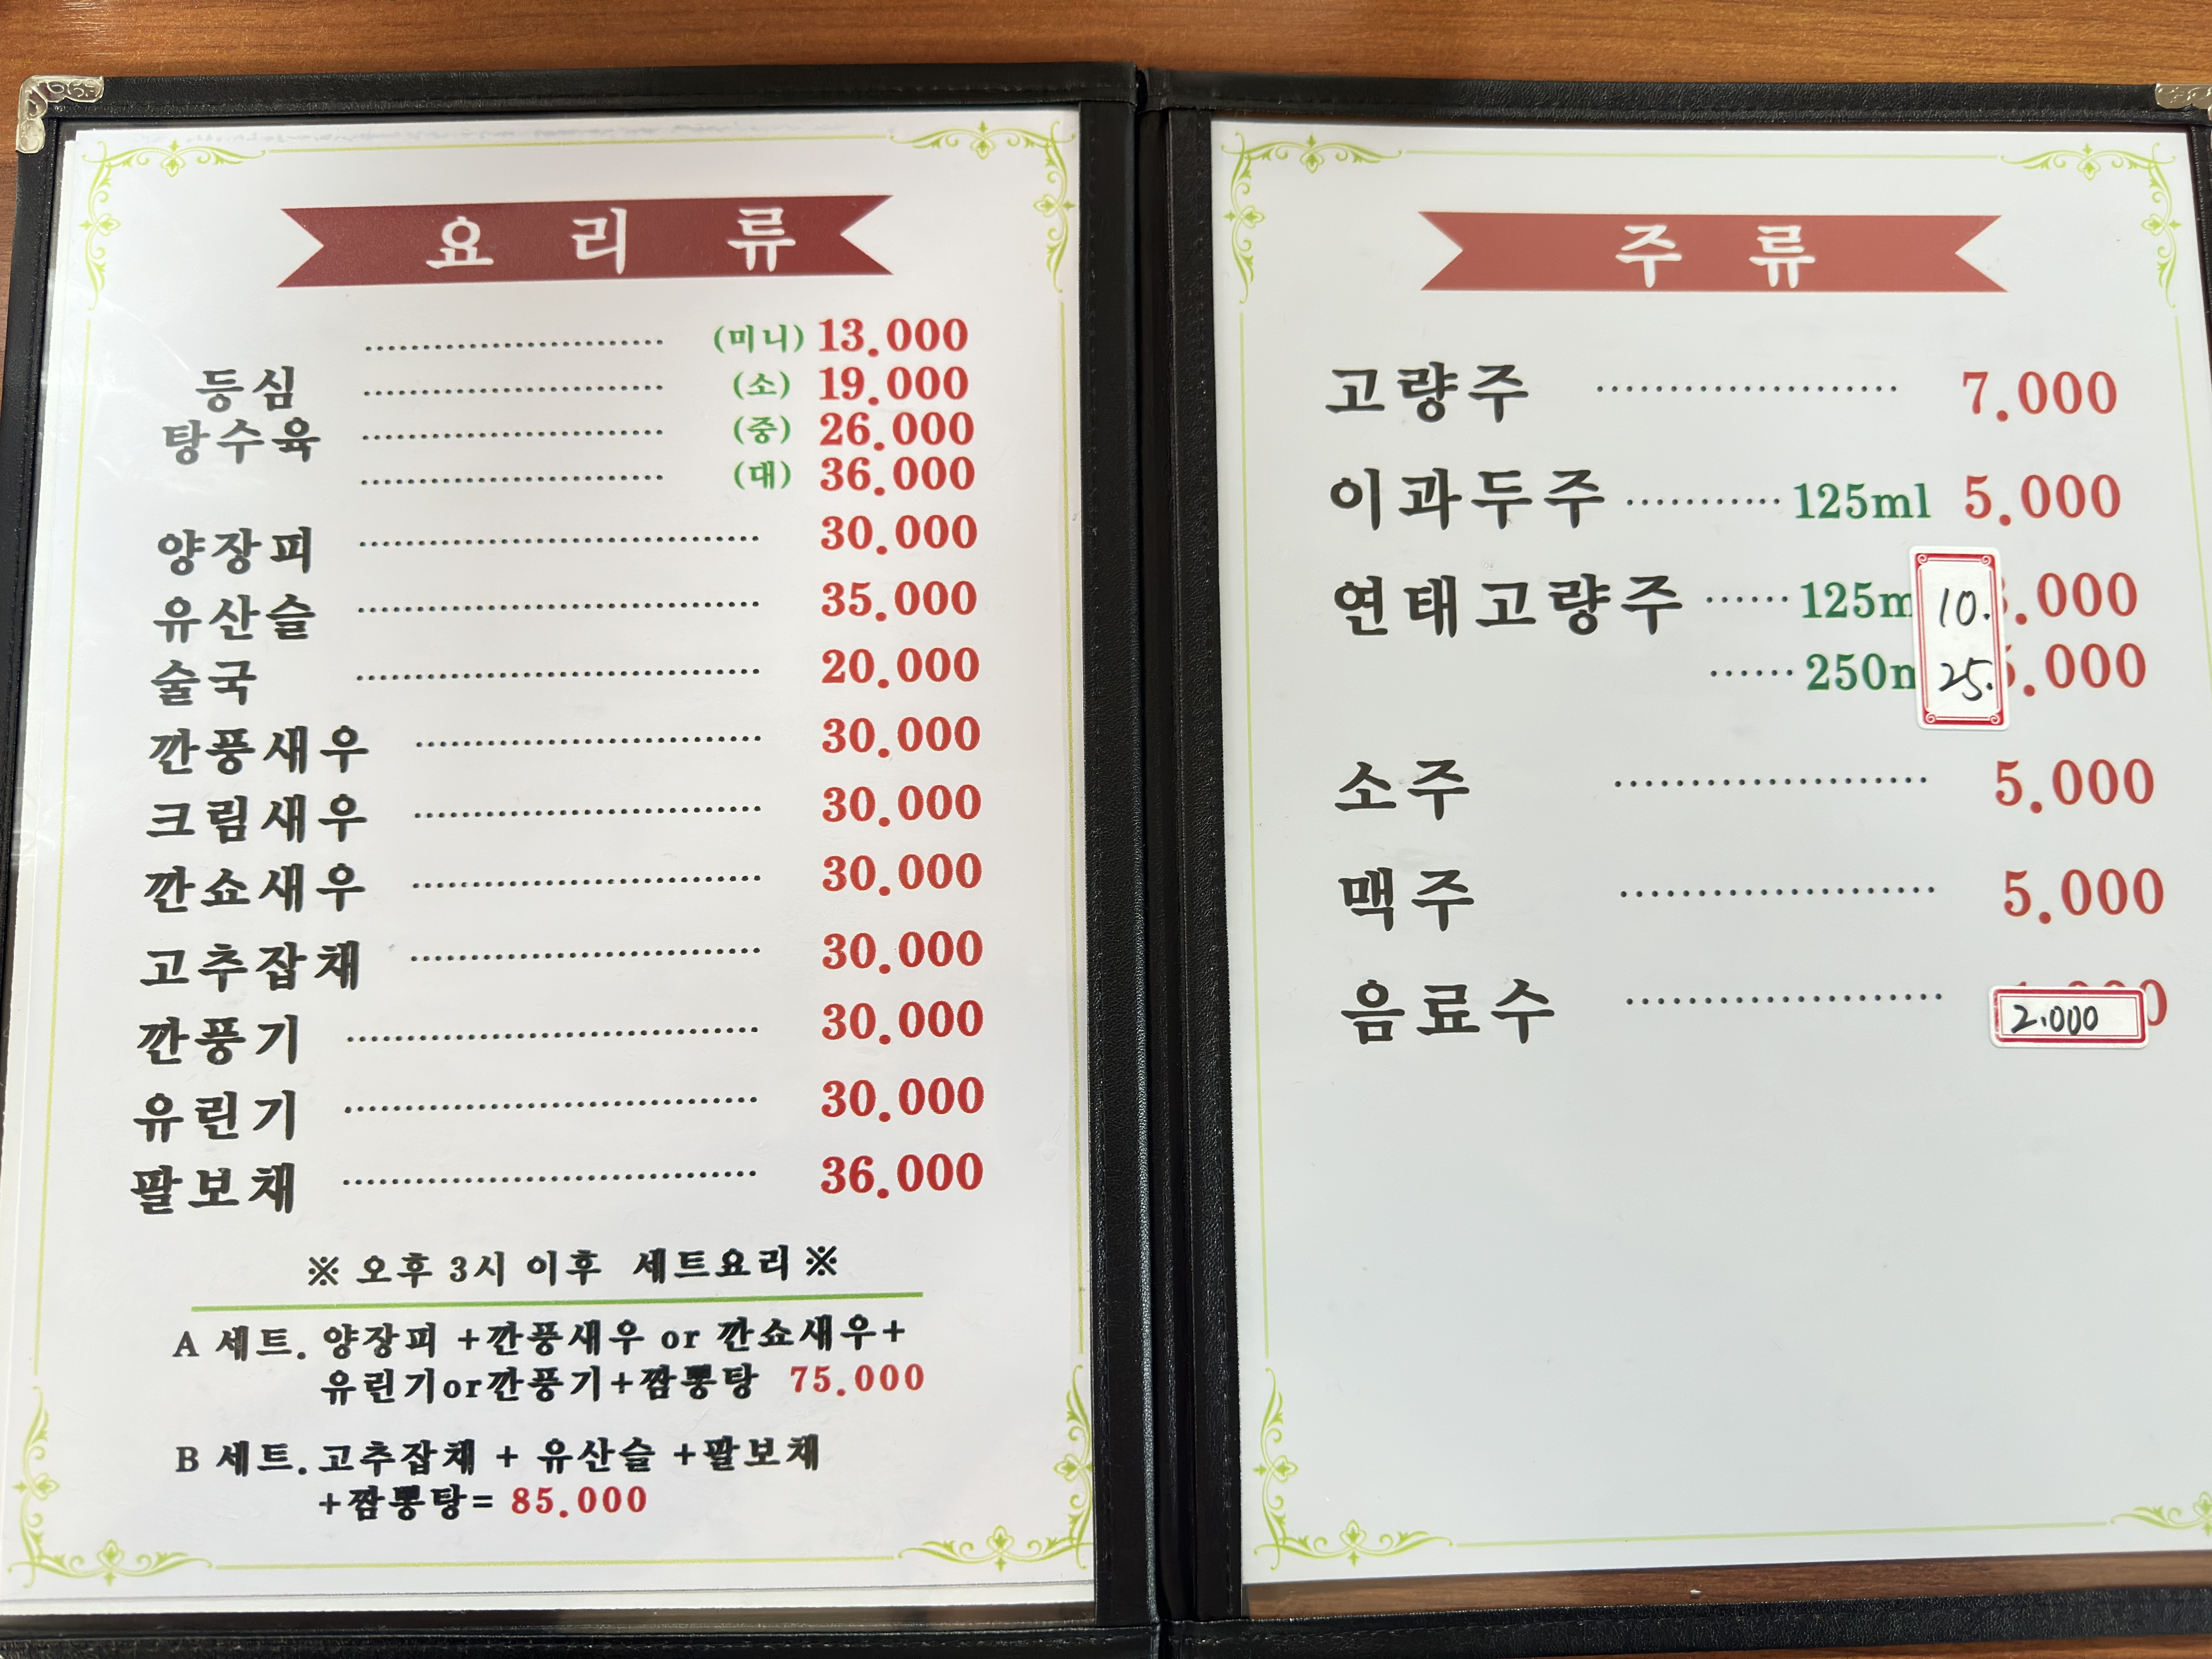 요리류
(미니) 13.000
등심 (소) 19.000
탕수육 (중) 26.000
(대) 36.000
양장피 30.000
유산슬 35.000
술국 20.000
깐풍새우 30.000
크림새우 30.000
깐쇼새우 30.000
고추잡채 30.000
깐풍기 30.000
유린기 30.000
팔보채 36.000
※ 오후 3시 이후 세트요리 ※
A 세트. 양장피 +깐풍새우 or 깐쇼새우+
유린기or깐풍기+짬뽕탕 75.000
B 세트. 고추잡채 + 유산슬 +팔보채
+짬뽕탕= 85.000
주류
고량주 7.000
이과두주 125ml 5.000
연태고량주 125m 10. .000
250m 25. .000
소주 5.000
맥주 5.000
음료수 2.000